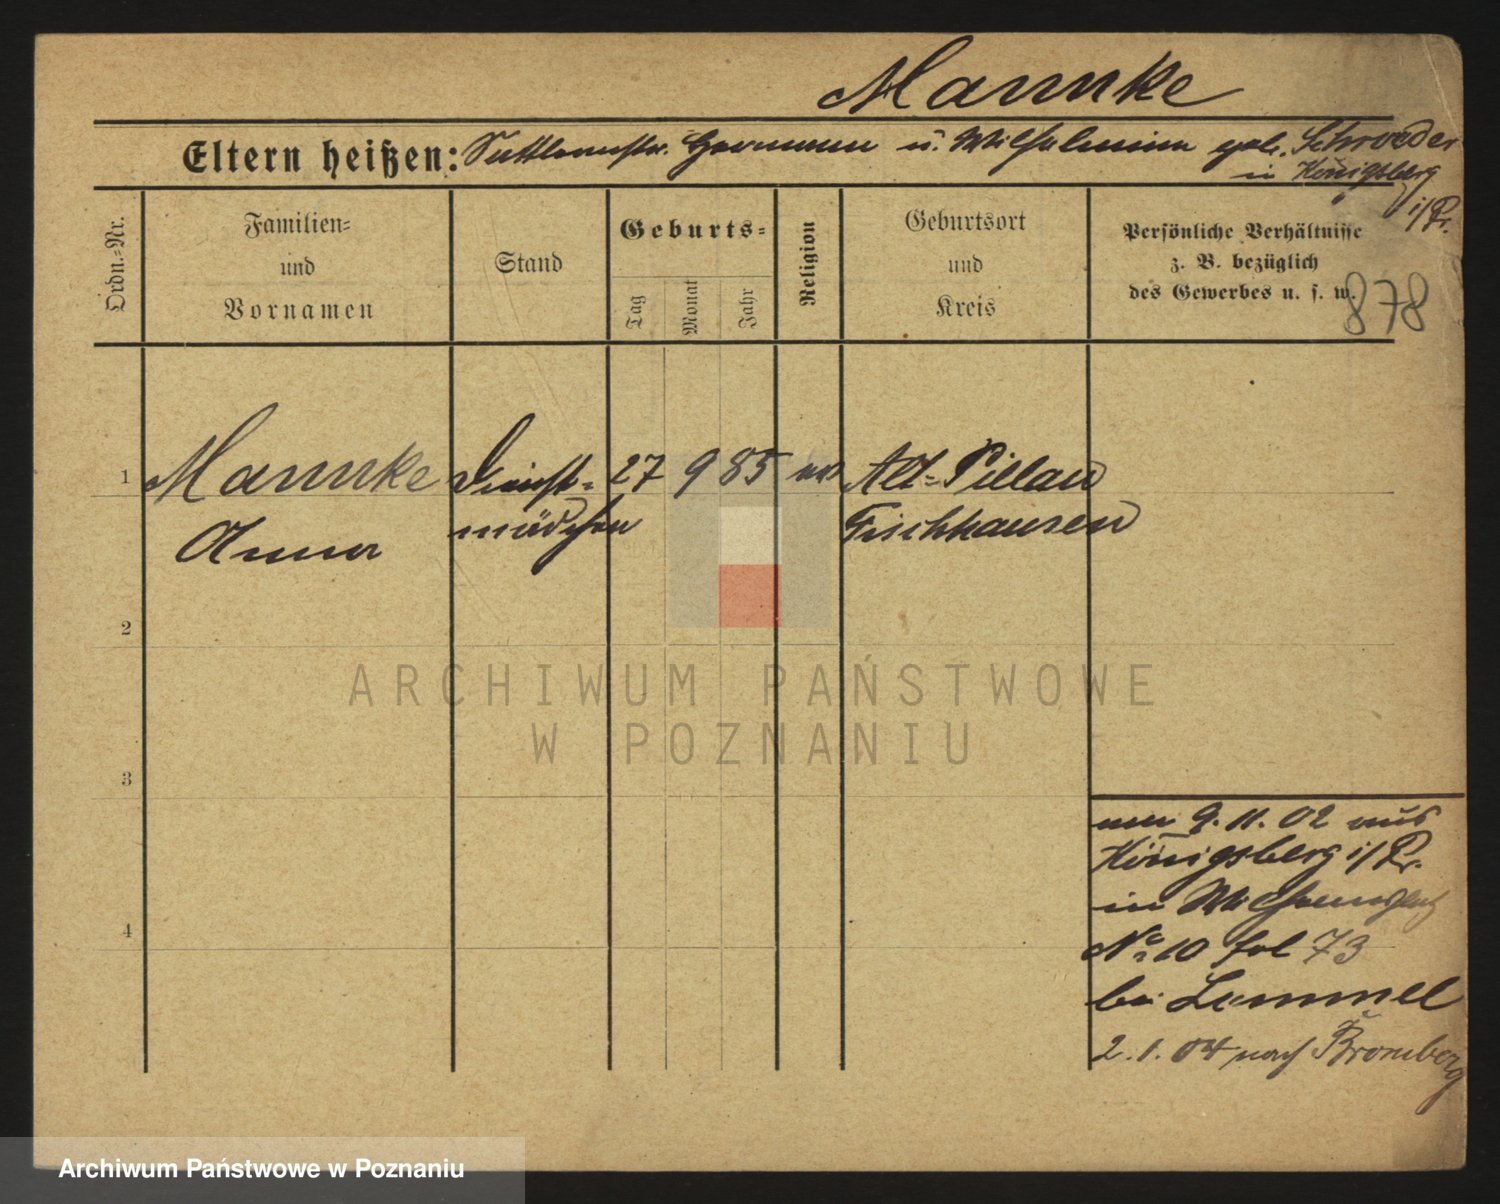 Mannke
Eltern heißen: Sattlermstr. Hermann u. Wilhelmine geb. Schroeder
in Königsberg
i/Pr.
Ordn.-Nr.
Familien-
und
Vornamen
Stand
Geburts-
Tag
Monat
Jahr
Religion
Geburtsort
und
Kreis
Persönliche Verhältnisse
z. B. bezüglich
des Gewerbes u. s. w.
878
1 Mannke Dienst- 27 9 85 ev. Alt-Pillau
Anna mädchen Fischhausen
2
3
4
am 9.11.02 aus
Königsberg i/Pr.
in Wilhelmsplatz
No 10 fol 73
bei Lemmel
2.1.04 nach Bromberg
ARCHIWUM PAŃSTWOWE
W POZNANIU
Archiwum Państwowe w Poznaniu